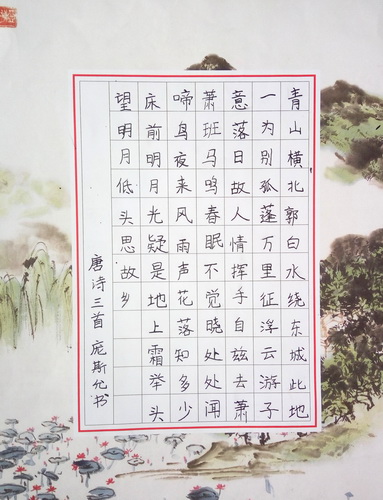 青山横北郭白水绕东城此地
一为别孤蓬万里征浮云游子
意落日故人情挥手自兹去萧
萧班马鸣春眠不觉晓处处闻
啼鸟夜来风雨声花落知多少
床前明月光疑是地上霜举头
望明月低头思故乡
唐诗三首 庞斯允书